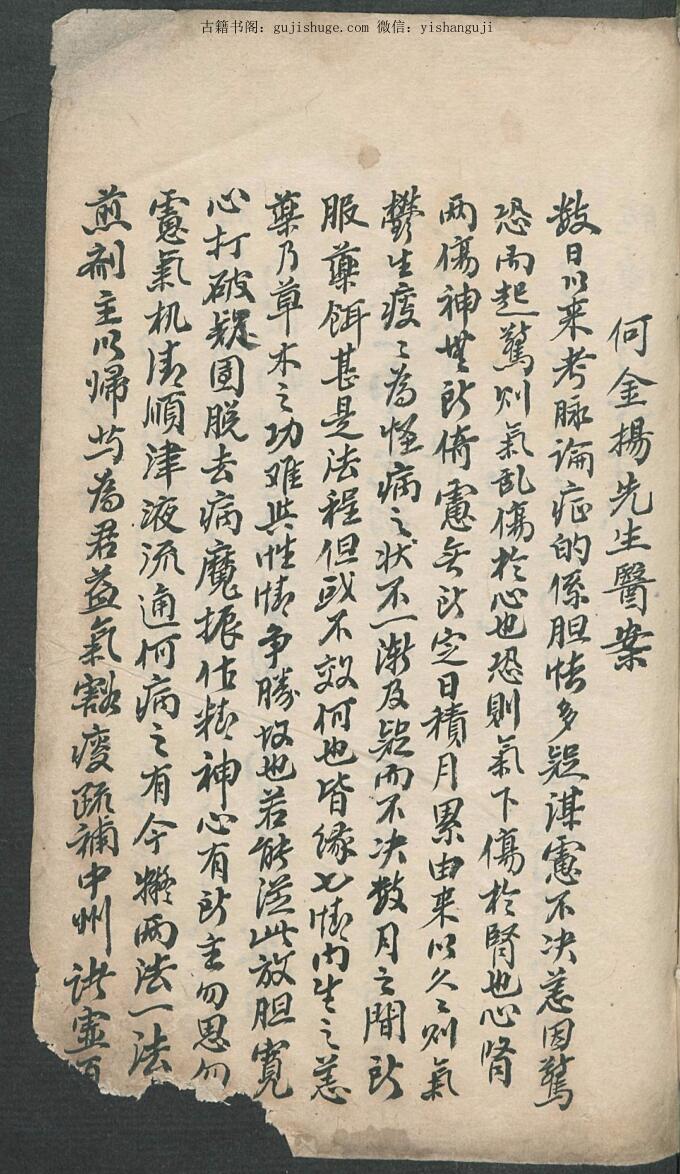 古籍书阁：gujishuge.com 微信：yishanguji
何金楊先生醫案
数日以来考脉論症的係胆怯多疑謀慮不决恙因驚
恐而起驚则氣乱傷於心也恐則氣下傷於腎也心腎
两傷神無所倚慮無所定日積月累由来以久〻则氣
鬱生痰〻為怪病之状不一漸及疑而不决数月之間所
服藥餌甚是法程但或不效何也皆缘七情内生之恙
藥乃草木之功难與性情争勝故也若能從此放胆寛
心打破疑团脱去病魔振作精神心有所主勿思勿
慮氣机清順津液流通何病之有今擬两法一法
煎剂主以帰芍為君益氣豁痰疏補中州